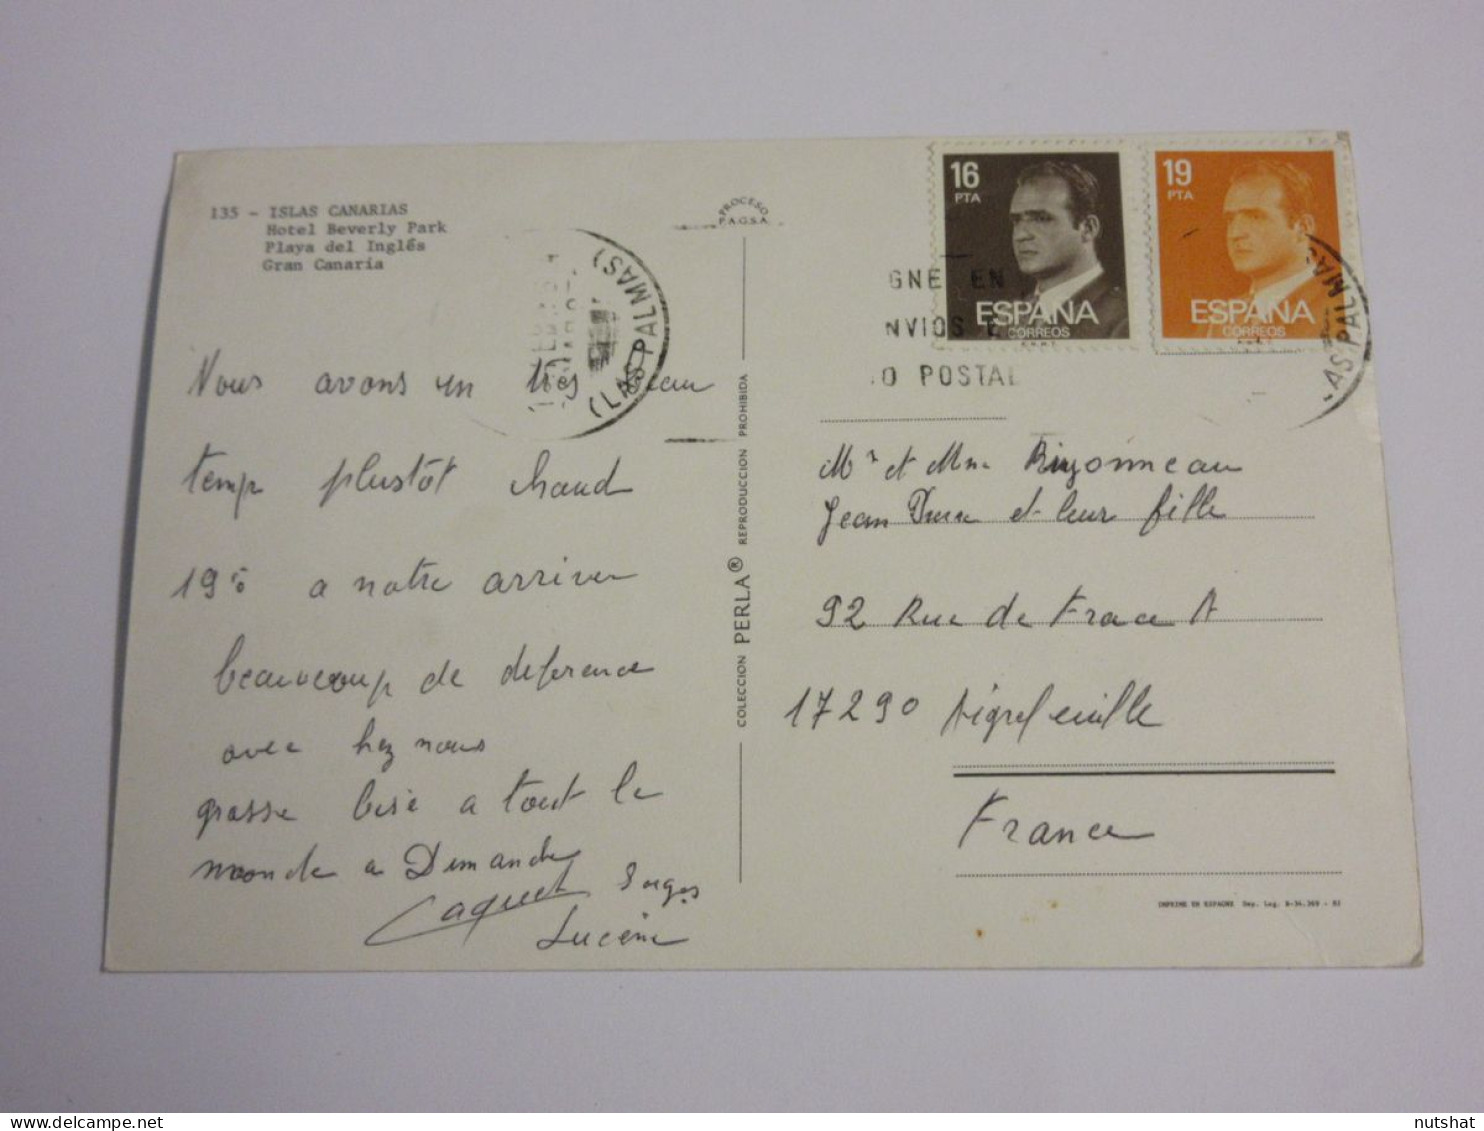 135 - ISLAS CANARIAS
Hotel Beverly Park
Playa del Inglés
Gran Canaria
PROCESO
P.A.G.S.A.
16
PTA
ESPAÑA
CORREOS
19
PTA
ESPAÑA
CORREOS
(LAS PALMAS)
GNE EN
NVIOS
O POSTAL
AS PALMAS
Nous avons un tres beau
temp plustôt chaud
19% a notre arriver
beaucoup de deference
avec hez nous
grosse bise a tout le
monde a Dimanche
Caquet
Lucène
COLECCION PERLA® REPRODUCCION PROHIBIDA
Mr et Mme
Jean et leur fille
92 Rue de France A
17290 Aigrefeuille
France
IMPRIME EN ESPAGNE Dep. Leg. B-36.369 - 82
nutshat